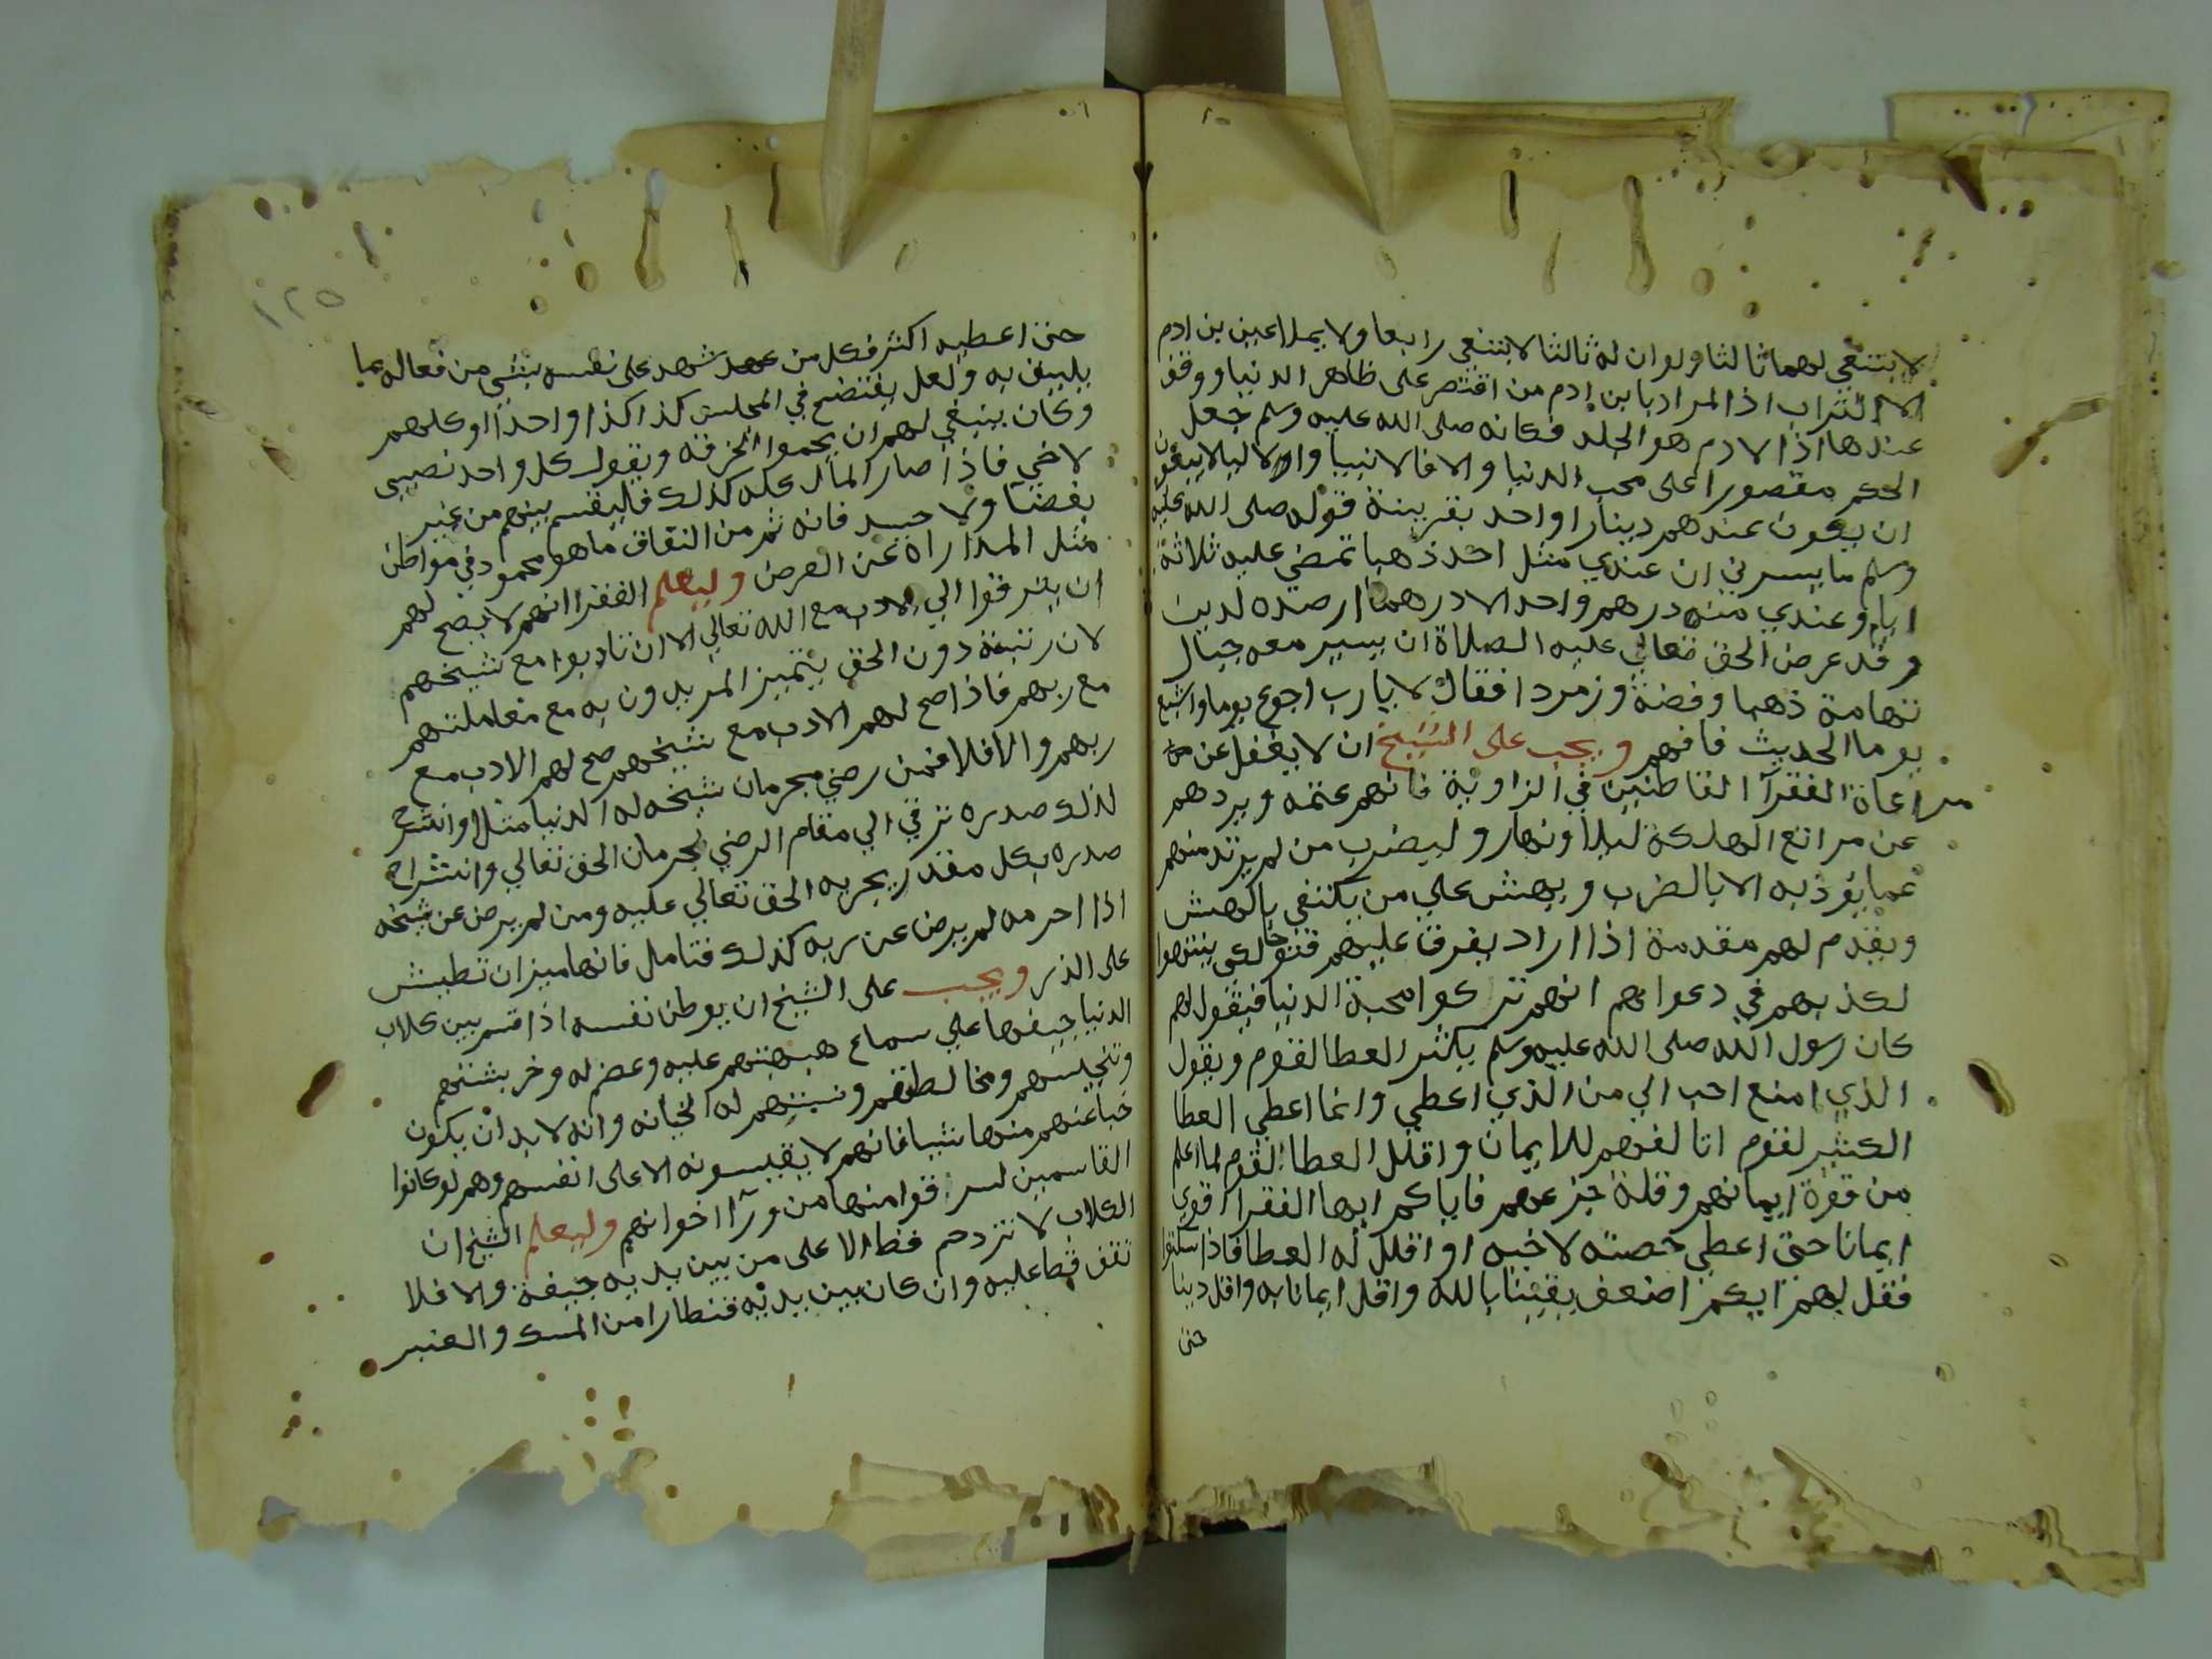 لابتغى لهما ثالثا ولو ان له ثالثا لابتغى رابعا ولا يملا عين بن ادم
الا التراب اذ المراد بابن ادم من اقتصر على ظاهر الدنيا ووقف
عندها اذ الادم هو الجلد فكانه صلى الله عليه وسلم جعل
الحكم مقصورا على محب الدنيا والا فالانبيا والاوليا لا يبغون
ان يكون عندهم دينارا واحد بقرينة قوله صلى الله عليه
وسلم ما يسرني ان عندي مثل احد ذهبا تمضي عليه ثلاثة
ايام وعندي منه درهم واحد الا درهما ارصده لدين
وقد عرض الحق تعالى عليه الصلاة ان يسير معه جبال
تهامة ذهبا وفضة وزمردا فقال لا يا رب اجوع يوما واشبع
يوما الحديث فافهم ويجب على الشيخ ان لا يغفل عن
مراعاة الفقرآ القاطنين في الزاوية فانهم غنمه ويردهم
عن مراتع الهلكة ليلا ونهار وليضرب من لم يرتد منهم
عما يؤذيه الا بالضرب ويهش على من يكتفي بالهش
ويقدم لهم مقدمة اذا اراد يفرق عليهم فتوحا لكي ينتبهوا
لكذبهم في دعواهم انهم تركوا محبة الدنيا فيقول لهم
كان رسول الله صلى الله عليه وسلم يكثر العطا لقوم ويقول
الذي امنع احب الي من الذي اعطي وانما اعطي العطا
الكثير لقوم اتالفهم للايمان واقلل العطا لقوم لما اعلم
من قوة ايمانهم وقلة جزعهم فاياكم ايها الفقرا اقوى
ايمانا حتى اعطي حصته لاخيه او اقلل له العطا فاذا سكتوا
فقل لهم ايكم اضعف يقينا بالله واقل ايمانا به واقل دينا
حتى
١٢٥
حتى اعطيه اكثر فكل من عهد شهد على نفسه بشي من فعاله بما
يليق به ولعل يفتضح في المجلس كذا كذا واحدا او كلهم
وكان ينبغي لهم ان يحموا الخرقة ويقول كل واحد نصيبي
لاخي فاذا صار المال كله كذلك فليقسم بينهم من غير
بغضنآ ولا حسد فانه ثم من النفاق ما هو محمود في مواطن
مثل المداراة عن العرض وليعلم الفقرا انهم لا يصح لهم
ان يترقوا الي الادب مع الله تعالى الا ان تادبوا مع شيخهم
لان رتبته دون الحق يتميز المريدون به مع معاملتهم
مع ربهم فاذا صح لهم الادب مع شيخهم صح لهم الادب مع
ربهم والا فلا فمن رضي بحرمان شيخه له الدنيا مثلا وانشرح
لذلك صدره ترقي الي مقام الرضي بحرمان الحق تعالي وانشراح
صدره بكل مقدر يجريه الحق تعالي عليه ومن لم يرض عن شيخه
اذا احرمه لم يرض عن ربه كذلك فتامل فانها ميزان تطيش
على الذر ويجب على الشيخ ان يوطن نفسه اذا قسم بين كلاب
الدنيا جيفها علي سماع هبهبتهم عليه وعضهم له وخربشتهم
وتنجيسهم ومخالطتهم ونسبتهم له الخيانه وانه لا بد ان يكون
خبا عنهم منها شيا فانهم لا يقيسونه الا على انفسهم وهم لو كانوا
القاسمين لسرقوا منها من ورآ اخوانهم وليعلم الشيخ ان
الكلاب لا تزدحم قط الا على من بين يديه جيفة والا فلا
تقف قط عليه وان كان بين يديه قنطارا من المسك والعنبر